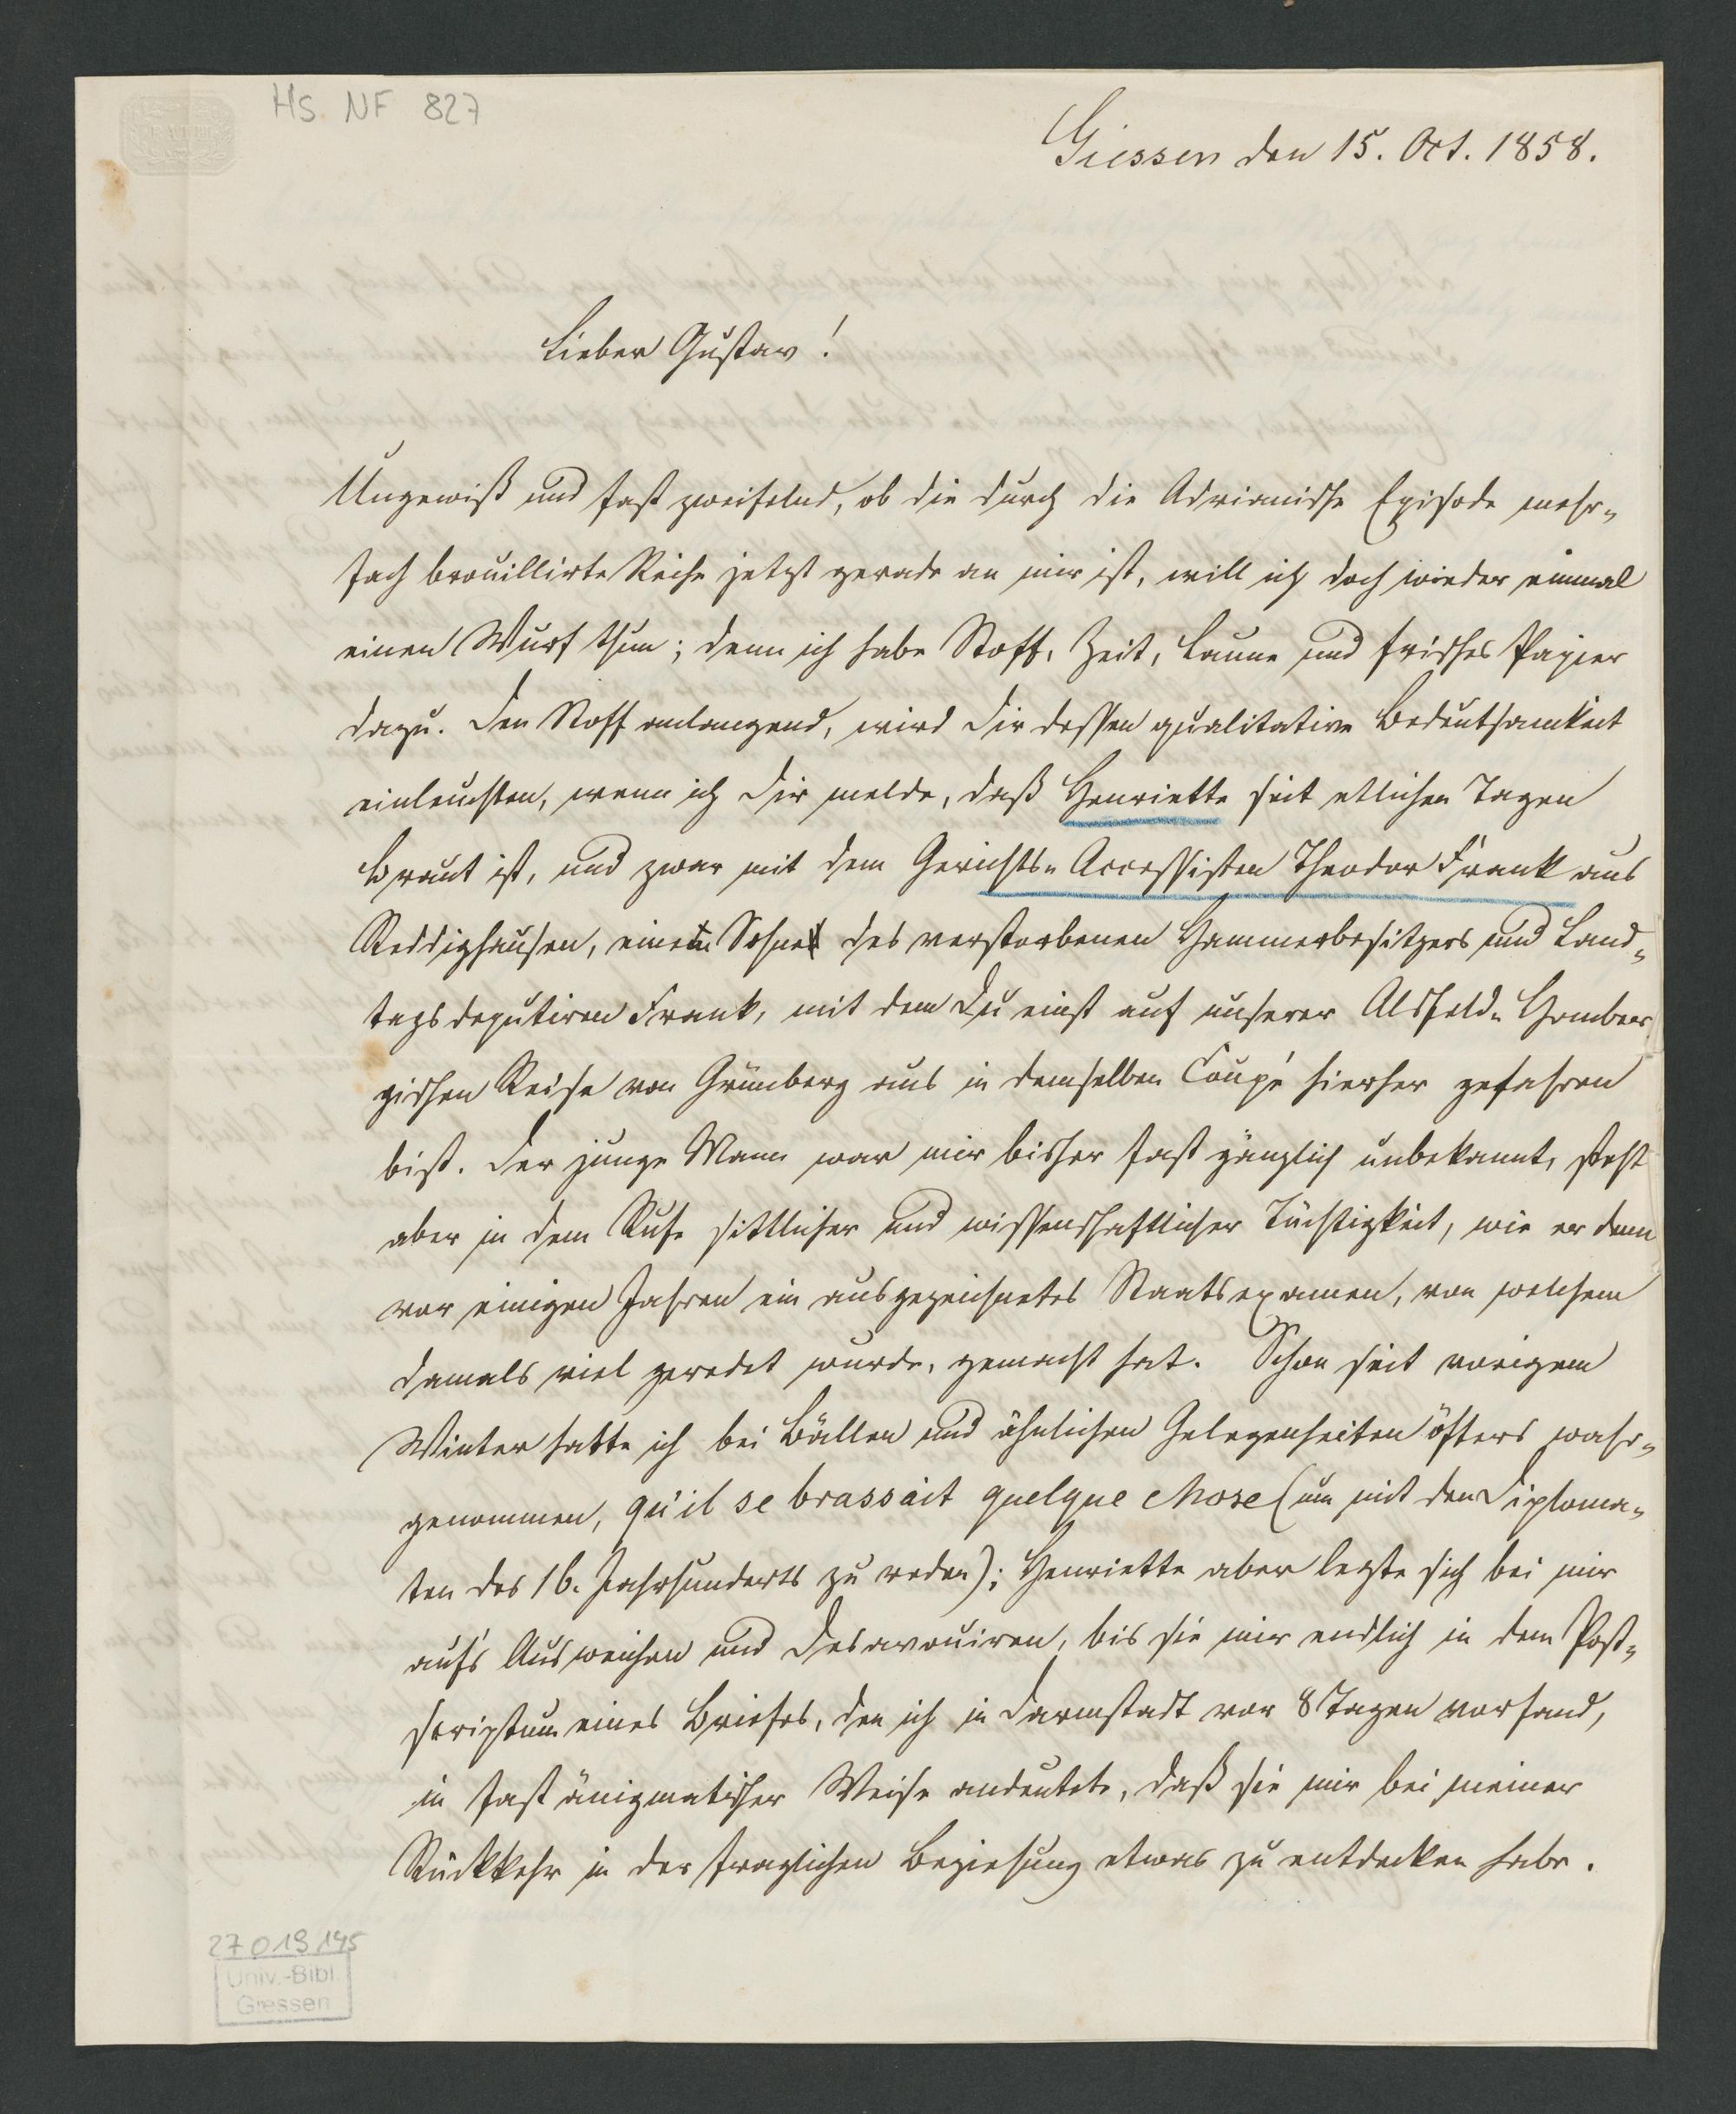 Hs. NF 827
Giessen den 15. Oct. 1858.
Lieber Gustav!
Ungewiß und fast zweifelnd, ob die durch die Adrianische Episode mehr-
fach brouillirte Reihe jetzt gerade an mir ist, will ich doch wieder einmal
einen Wurf thun; denn ich habe Stoff, Zeit, Laune und frisches Papier
dazu. Den Stoff anlangend, wird Dir dessen qualitative Bedeutsamkeit
einleuchten, wenn ich Dir melde, daß Henriette seit etlichen Tagen
Braut ist, und zwar mit dem Gerichts-Accessisten Theodor Frank aus
Reddighausen, einem Sohne des verstorbenen Hammerbesitzers und Land-
tagsdeputiren Frank, mit dem Du einst auf unserer Alsfeld-Homber-
gischen Reise von Grünberg aus in demselben Coupé hierher gefahren
bist. Der junge Mann war mir bisher fast gänzlich unbekannt, steht
aber in dem Rufe sittlicher und wissenschaftlicher Tüchtigkeit, wie er denn
vor einigen Jahren ein ausgezeichnetes Staatsexamen, von welchem
damals viel geredet wurde, gemacht hat. Schon seit vorigem
Winter hatte ich bei Bällen und ähnlichen Gelegenheiten öfters wahr-
genommen, qu'il se brassait quelque chose (um mit den Diploma-
ten des 16. Jahrhunderts zu reden); Henriette aber legte sich bei mir
auf's Ausweichen und Desavouiren, bis sie mir endlich in dem Post-
scriptum eines Briefes, den ich in Darmstadt vor 8 Tagen vorfand,
in fast änigmatischer Weise andeutete, daß sie mir bei meiner
Rückkehr in der fraglichen Beziehung etwas zu entdecken habe.
27 019 145
Univ.-Bibl.
Giessen